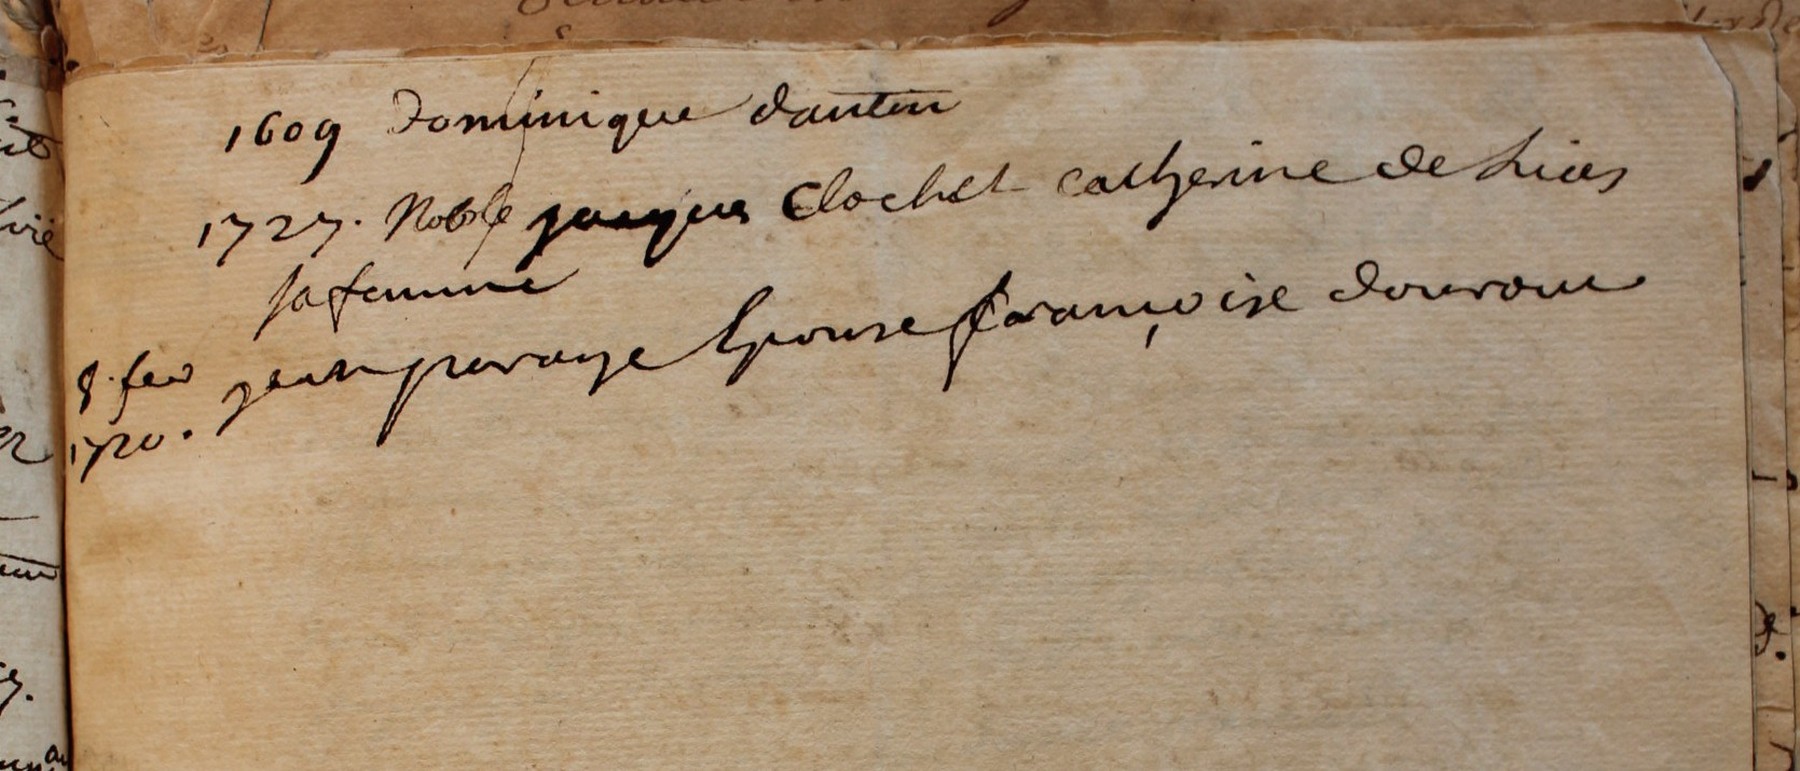 1609 Dominique dantin
1727. Noble jacques Clochet catherine de hies
sa femme
8. fev jean parage Epouse françoise
1720.